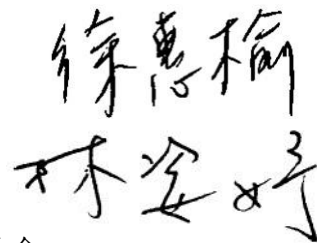 徐惠榆
林姿妤